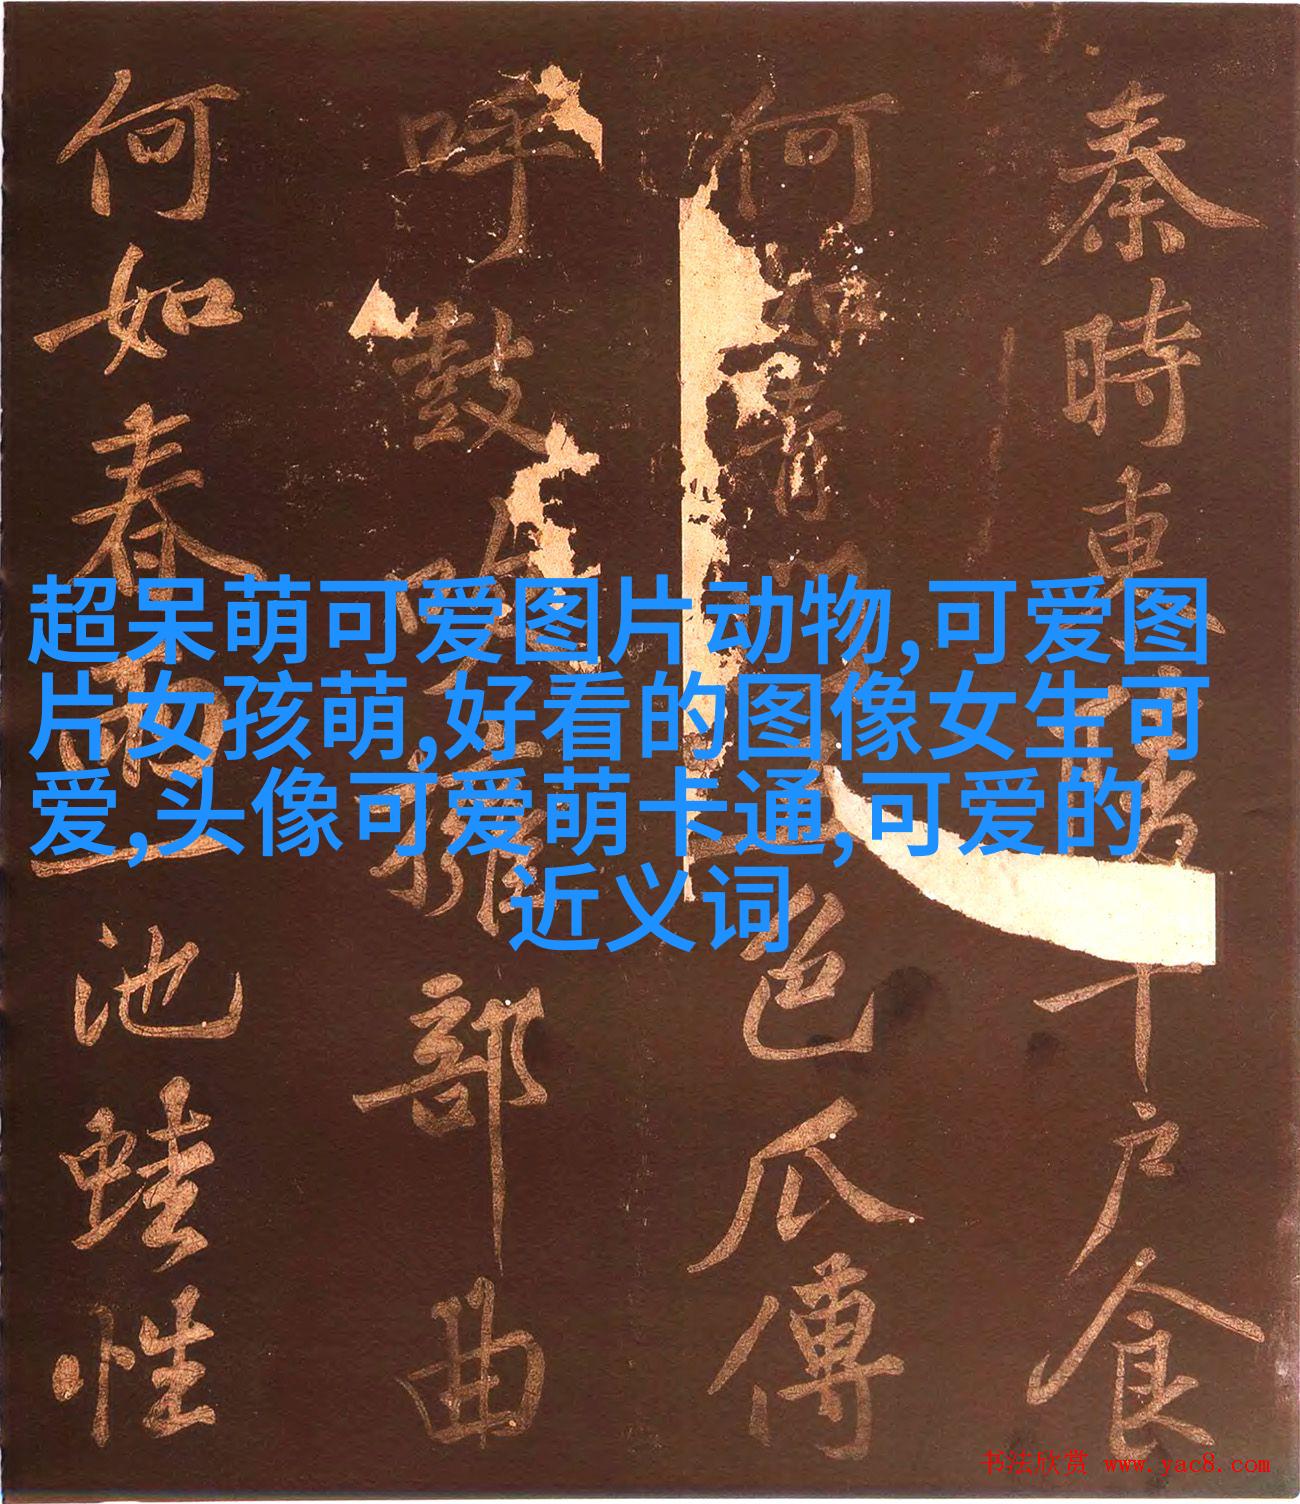 秦時東陵千戶食
何如青門五色瓜傅
呼鼓吹擁部曲
何如春雨一池蛙性
超呆萌可爱图片动物,可爱图
片女孩萌,好看的图像女生可
爱,头像可爱萌卡通,可爱的
近义词
书法欣赏 www.yac8.com